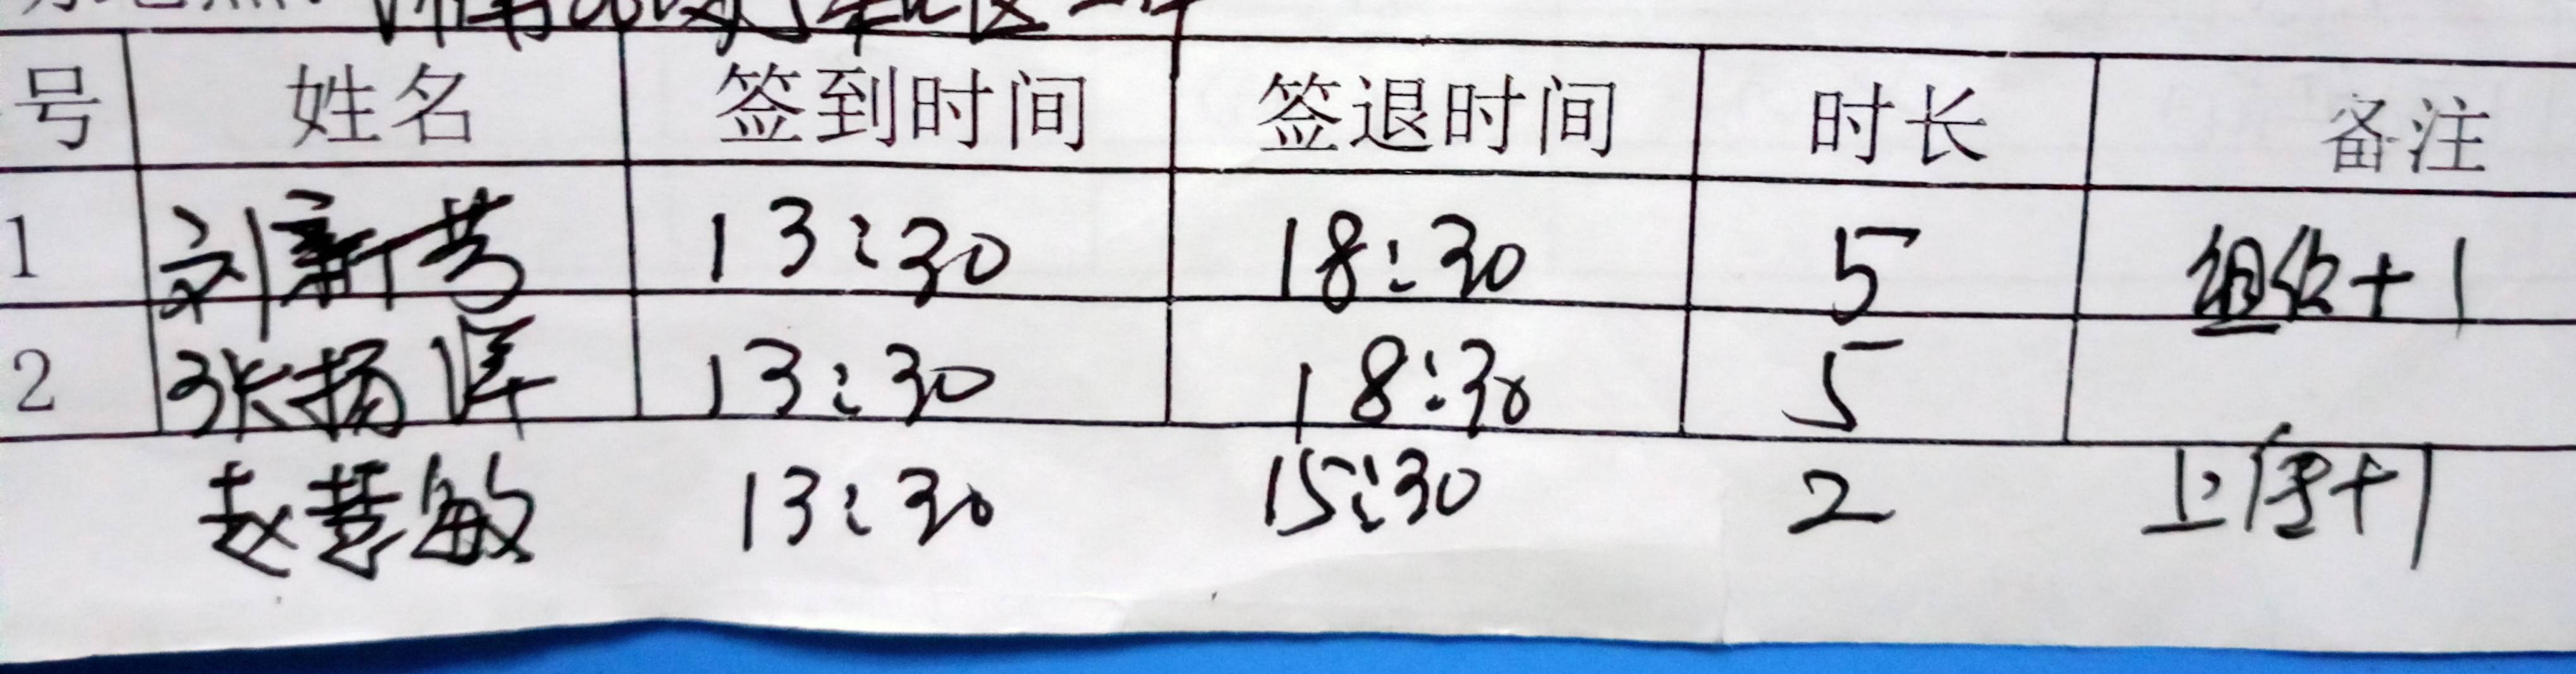 号 姓名 签到时间 签退时间 时长 备注
1 刘新芳 13:30 18:30 5 +1
2 张扬 13:30 18:30 5
赵慧敏 13:30 15:30 2 上传+1